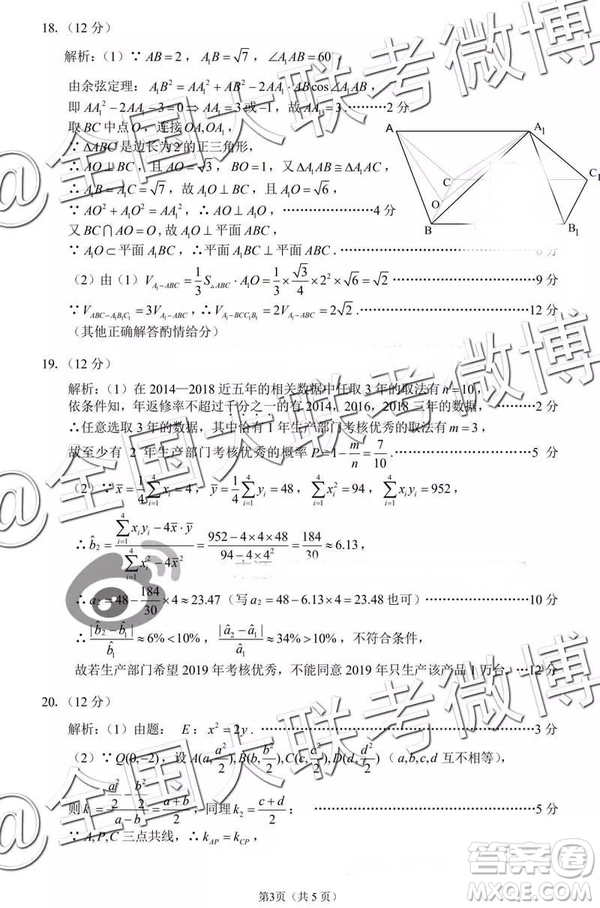 18. （12 分）
解析：（1）∵ AB=2，A₁B=√7，∠A₁AB=60°，
由余弦定理：A₁B²=AA₁²+AB²−2AA₁·AB cos∠A₁AB，
即 AA₁²−2AA₁−3=0⇒AA₁=3或-1，故AA₁=3.………2 分
取 BC 中点 O，连接 OA,OA₁，
∵ △ABC 是边长为 2 的正三角形，
∴ AO⊥BC，且 AO=√3，BO=1，又△A₁AB≅△A₁AC
∴ A₁B=A₁C=√7，故 A₁O⊥BC，且 A₁O=√6，
∵ AO²+A₁O²=AA₁²，∴ AO⊥A₁O，………………4分
又 BC∩AO=O，
∵ A₁O⊂平面A₁BC，∴平面 A₁BC⊥平面 ABC．
（2）由（1）V_{A₁−ABC}=1/3 S_{△ABC}·A₁O=1/3×√3/4×2²×√6=√2 ………………9 分
∵ V_{ABC−A₁B₁C₁}=3V_{A₁−ABC}，∴ V_{A₁−BCC₁B₁}=2V_{A₁−ABC}=2√2．………………12 分
(其他正确解答酌情给分)
19. （12 分）
解析：（1）在 2014—2018 近五年的相关数据中任取 3 年的取法有 n=10，
依条件知，年返修率不超过千分之一的有 2014，2016，2018 三年的数据，………2 分
∴任意选取 3 年的数据，其中恰有 1 年生产部门考核优秀的取法有 m=3，
故至少有 2 年生产部门考核优秀的概率 P=1−m/n=7/10．………………5 分
（2）∵ x̄=1/4 ∑_{i=1}^{4} xᵢ=4，ȳ=1/4 ∑_{i=1}^{4} yᵢ=48，∑_{i=1}^{4} xᵢ²=94，∑_{i=1}^{4} xᵢyᵢ=952，
∴ b̂₂=(∑_{i=1}^{4} xᵢyᵢ−4x̄·ȳ)/(∑_{i=1}^{4} xᵢ²−4x̄²)=(952−4×4×48)/(94−4×4²)=184/30≈6.13，
∴ a₂=48−184/30×4≈23.47（写 a₂=48−6.13×4=23.48 也可）………………10 分
∴ |b̂₂−b̂₁|/b̂₁≈6%<10%，|â₂−â₁|/â₁≈34%>10%，不符合条件，
故若生产部门希望 2019 年考核优秀，不能同意 2019 年只生产该产品 1 万台．…12 分
20. （12 分）
解析：（1）由题：E：x²=2y．
（2）∵ Q(0,−2)，设 A(a,a²/2),B(b,b²/2),C(c,c²/2),D(d,d²/2)（a,b,c,d 互不相等），
则 k₁=(a²/2−b²/2)/(a−b)=(a+b)/2，同理 k₂=(c+d)/2；………………5 分
∵ A,P,C 三点共线，∴ k_{AP}=k_{CP}，
第3页（共 5 页）
A
A₁
C
C₁
O
B
B₁
@全国大联考微博
@全国大联考微博
@全国大联考微博
答案圈
MXQE.COM